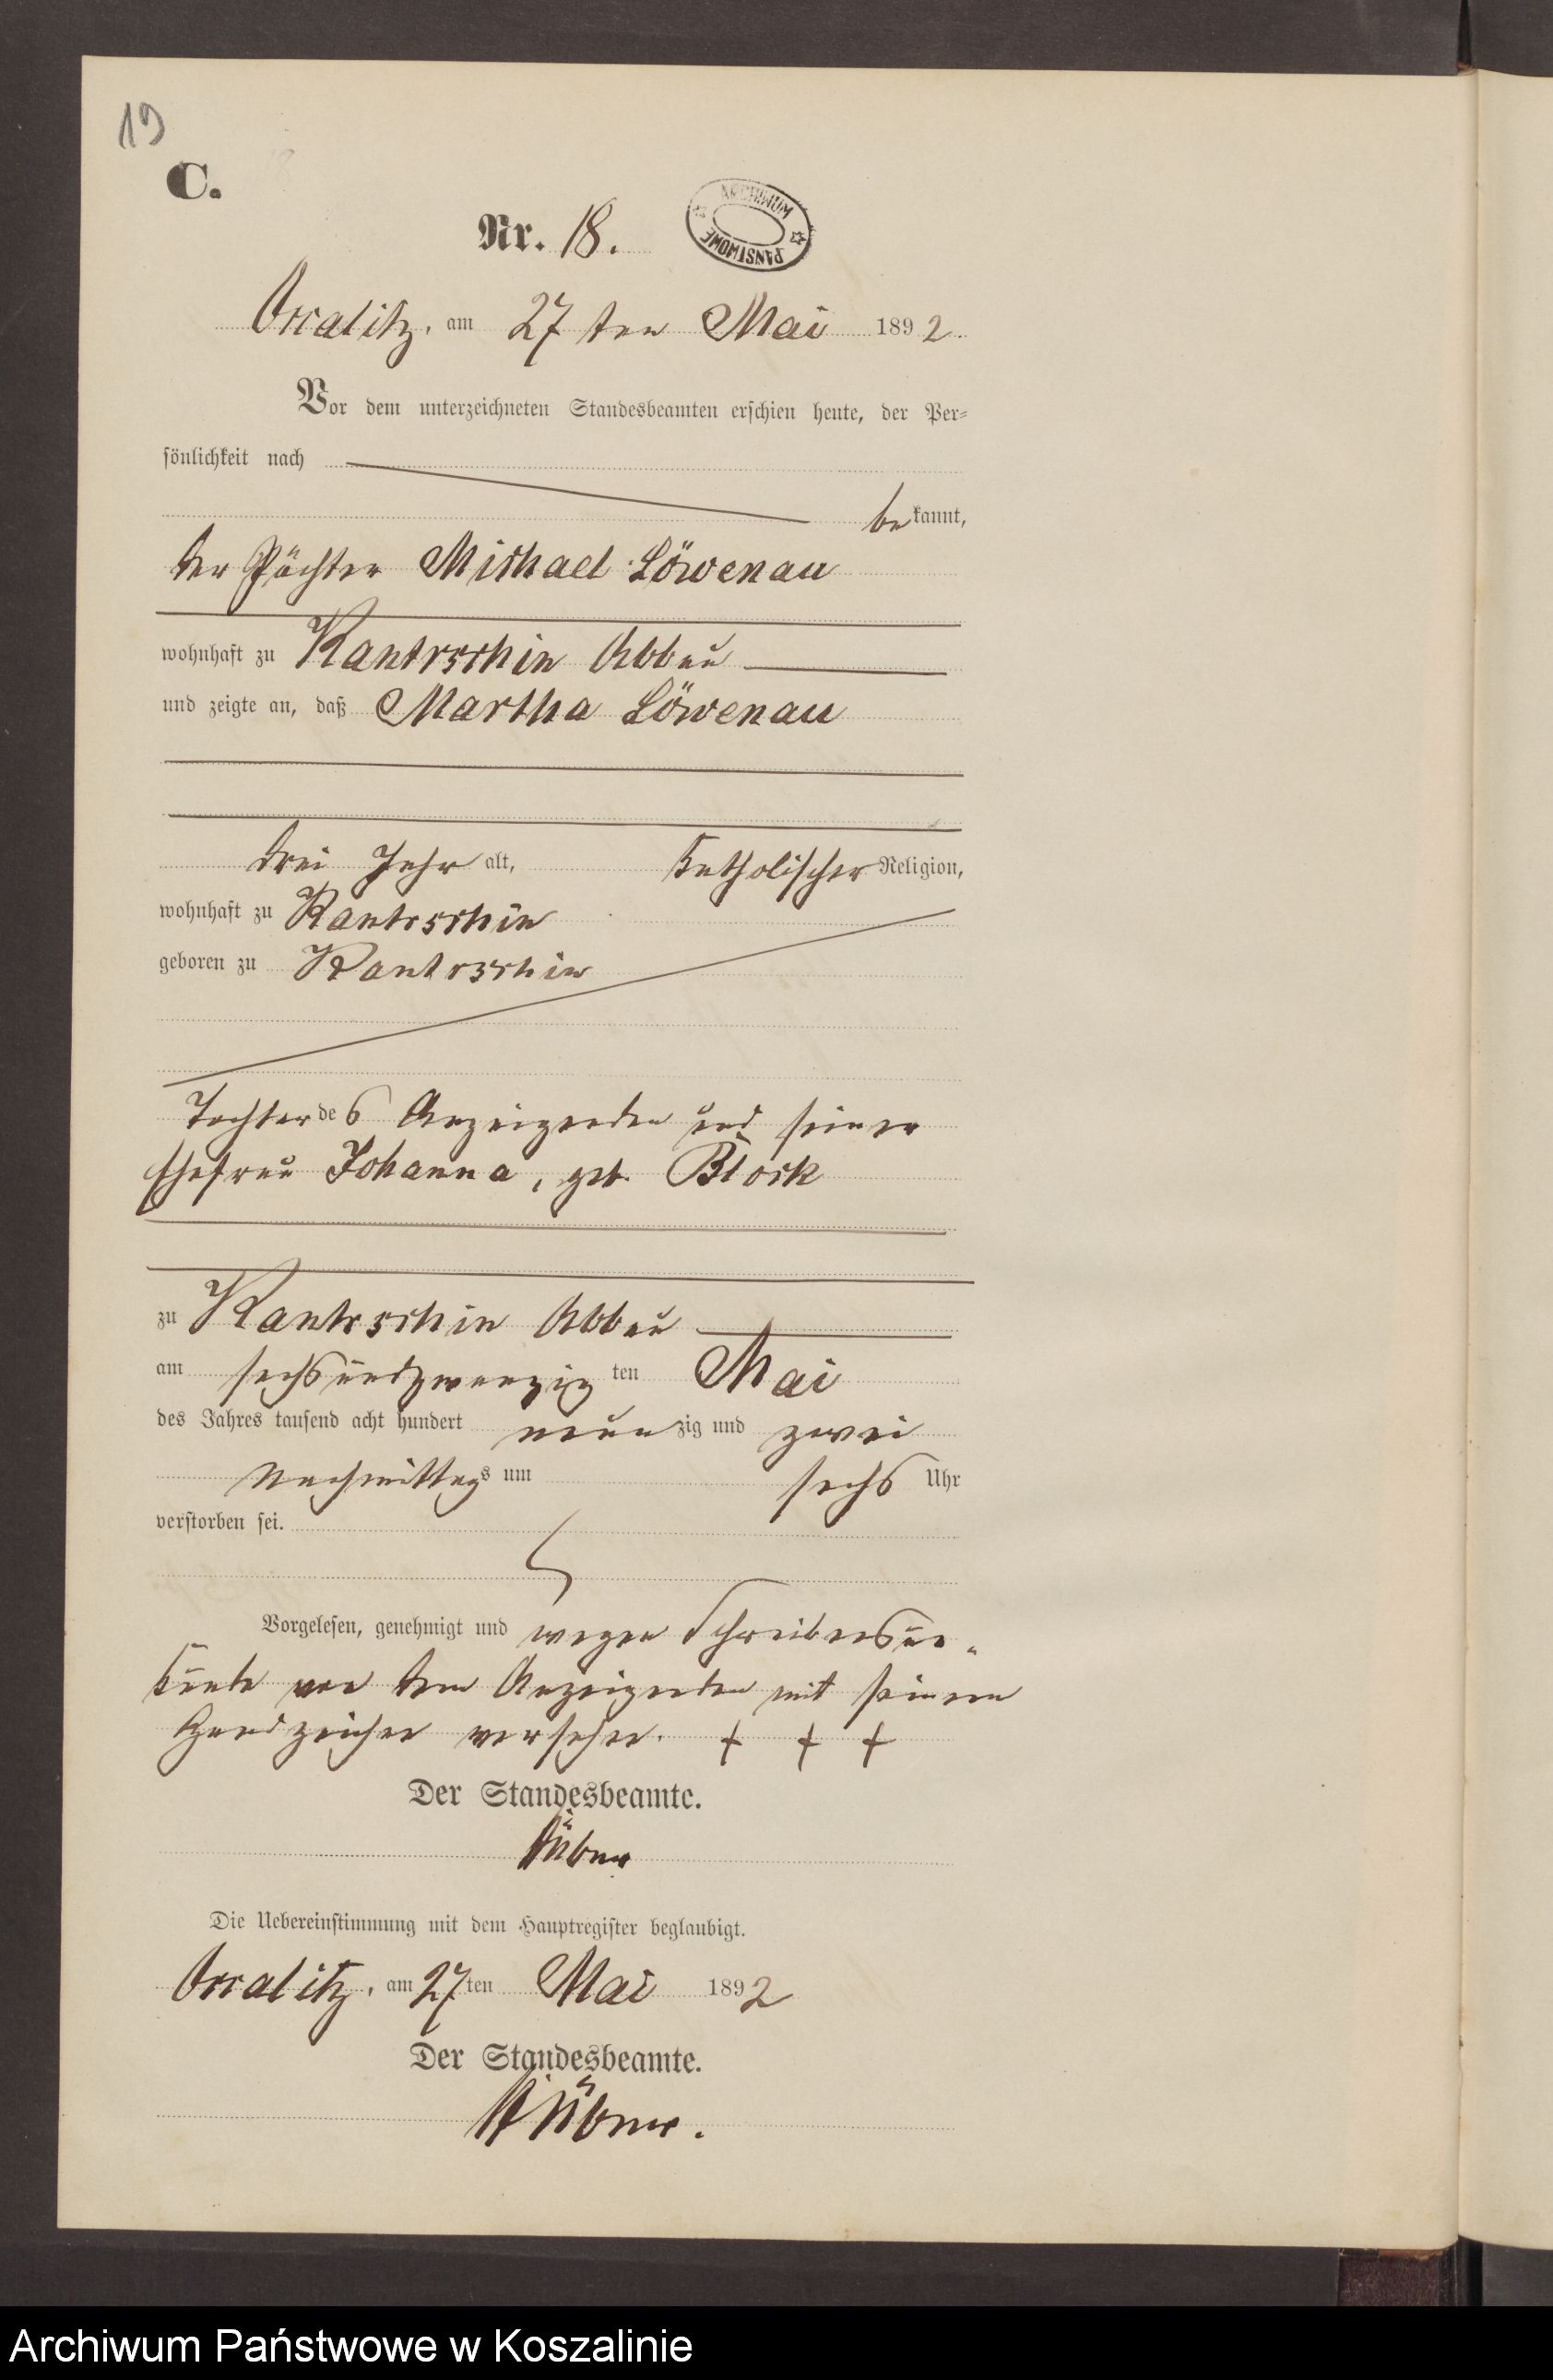 19
C.
Nr. 18.
ARCHIWUM PAŃSTWOWE
Occalitz, am 27 ten Mai 1892.
Vor dem unterzeichneten Standesbeamten erschien heute, der Per-
sönlichkeit nach
bekannt,
der Pächter Michael Löwenau
wohnhaft zu Kantrschin Abbau
und zeigte an, daß Martha Löwenau
drei Jahr alt, katholischer Religion,
wohnhaft zu Kantrschin
geboren zu Kantrschin
Tochter des Anzeigenden und seiner
Ehefrau Johanna, geb. Block
zu Kantrschin Abbau
am sechsundzwanzigten Mai
des Jahres tausend acht hundert neunzig und zwei
Nachmittags um sechs Uhr
verstorben sei.
Vorgelesen, genehmigt und wegen Schreibensun-
kunde von dem Anzeigenden mit seinem
Handzeichen versehen. + + +
Der Standesbeamte.
Die Uebereinstimmung mit dem Hauptregister beglaubigt.
Occalitz, am 27ten Mai 1892
Der Standesbeamte.
Archiwum Państwowe w Koszalinie